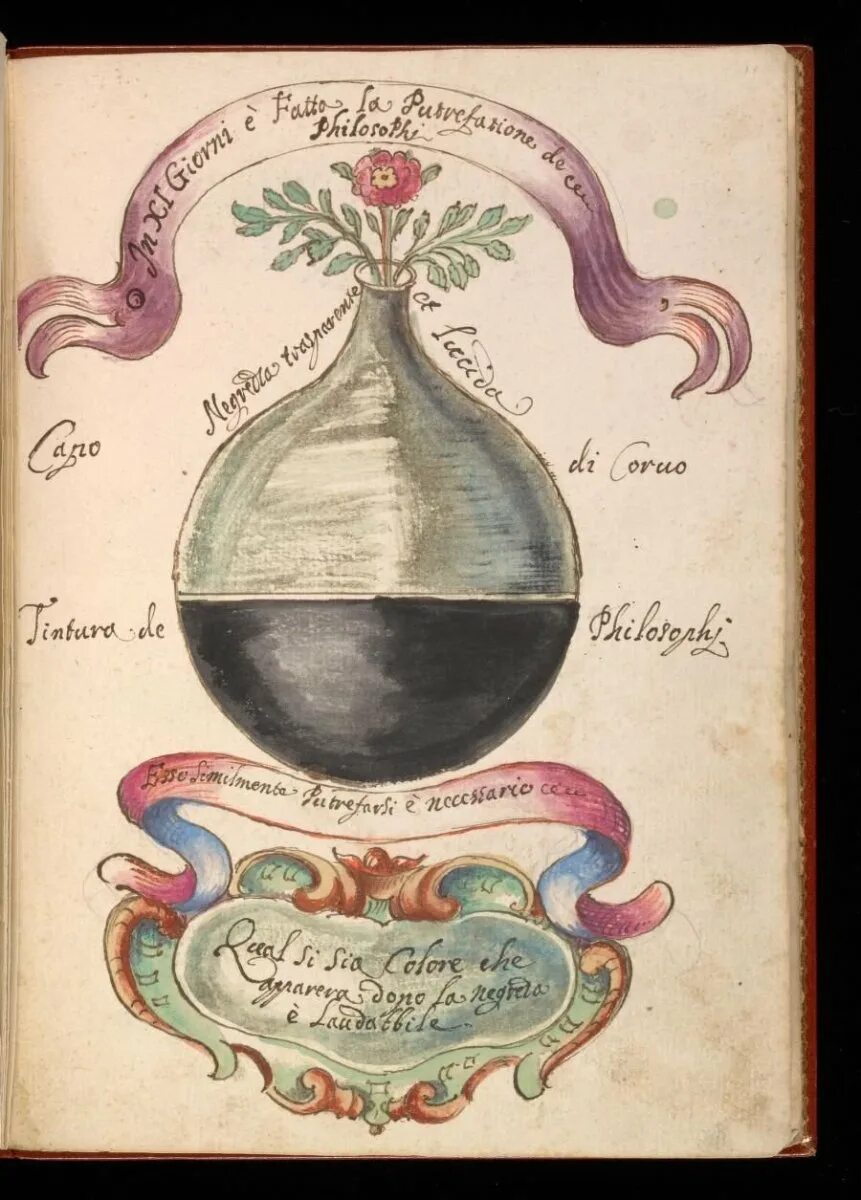 In XI Giorni è Fatta la Putrefatione de
Philosophi
Negretta trasparente et lucida
Capo di Coruo
Tintura de Philosophi
Esso similmente Putrefarsi è necessario
Qual si sia Colore che
apparera dopo la negretta
è laudabbile.